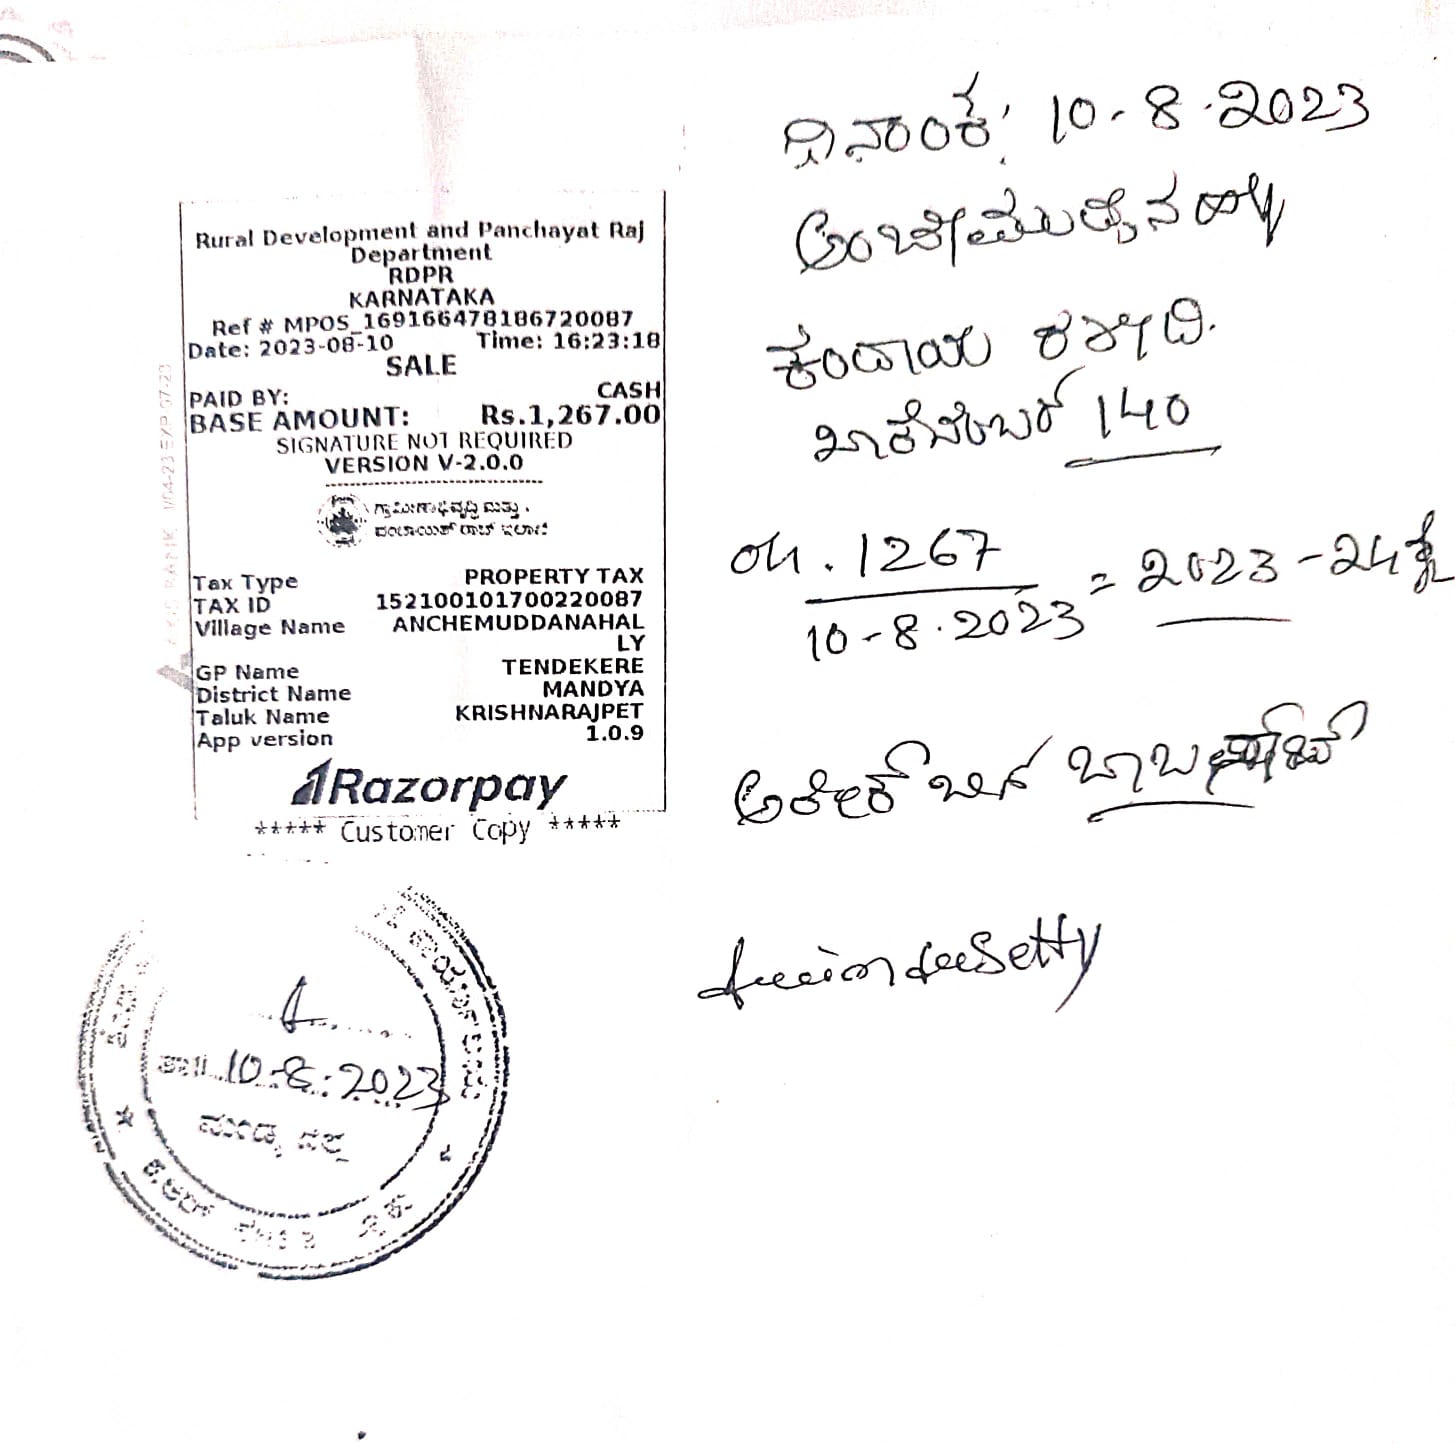 Rural Development and Panchayat Raj
Department
RDPR
KARNATAKA
Ref # MPOS_169166478186720087
Date: 2023-08-10 Time: 16:23:18
SALE
PAID BY: CASH
BASE AMOUNT: Rs.1,267.00
SIGNATURE NOT REQUIRED
VERSION V-2.0.0
ಗ್ರಾಮೀಣಾಭಿವೃದ್ಧಿ ಮತ್ತು
ಪಂಚಾಯತ್ ರಾಜ್ ಇಲಾಖೆ
Tax Type PROPERTY TAX
TAX ID 152100101700220087
Village Name ANCHEMUDDANAHAL
LY
GP Name TENDEKERE
District Name MANDYA
Taluk Name KRISHNARAJPET
App version 1.0.9
Razorpay
***** Customer Copy *****
ದಿನಾಂಕ: 10-8-2023
ಅಂಚೇಮುದ್ದನಹಳ್ಳಿ
ಕಂದಾಯ ರಶೀದಿ.
ಖಾತೆನಂಬರ್ 140
ರೂ. 1267
10-8-2023 = 2023-24ಕ್ಕೆ
Setty
ತಾ|| 10-8-2023
ಮಂಡ್ಯ ಜಿಲ್ಲೆ
ಕೆ.ಆರ್